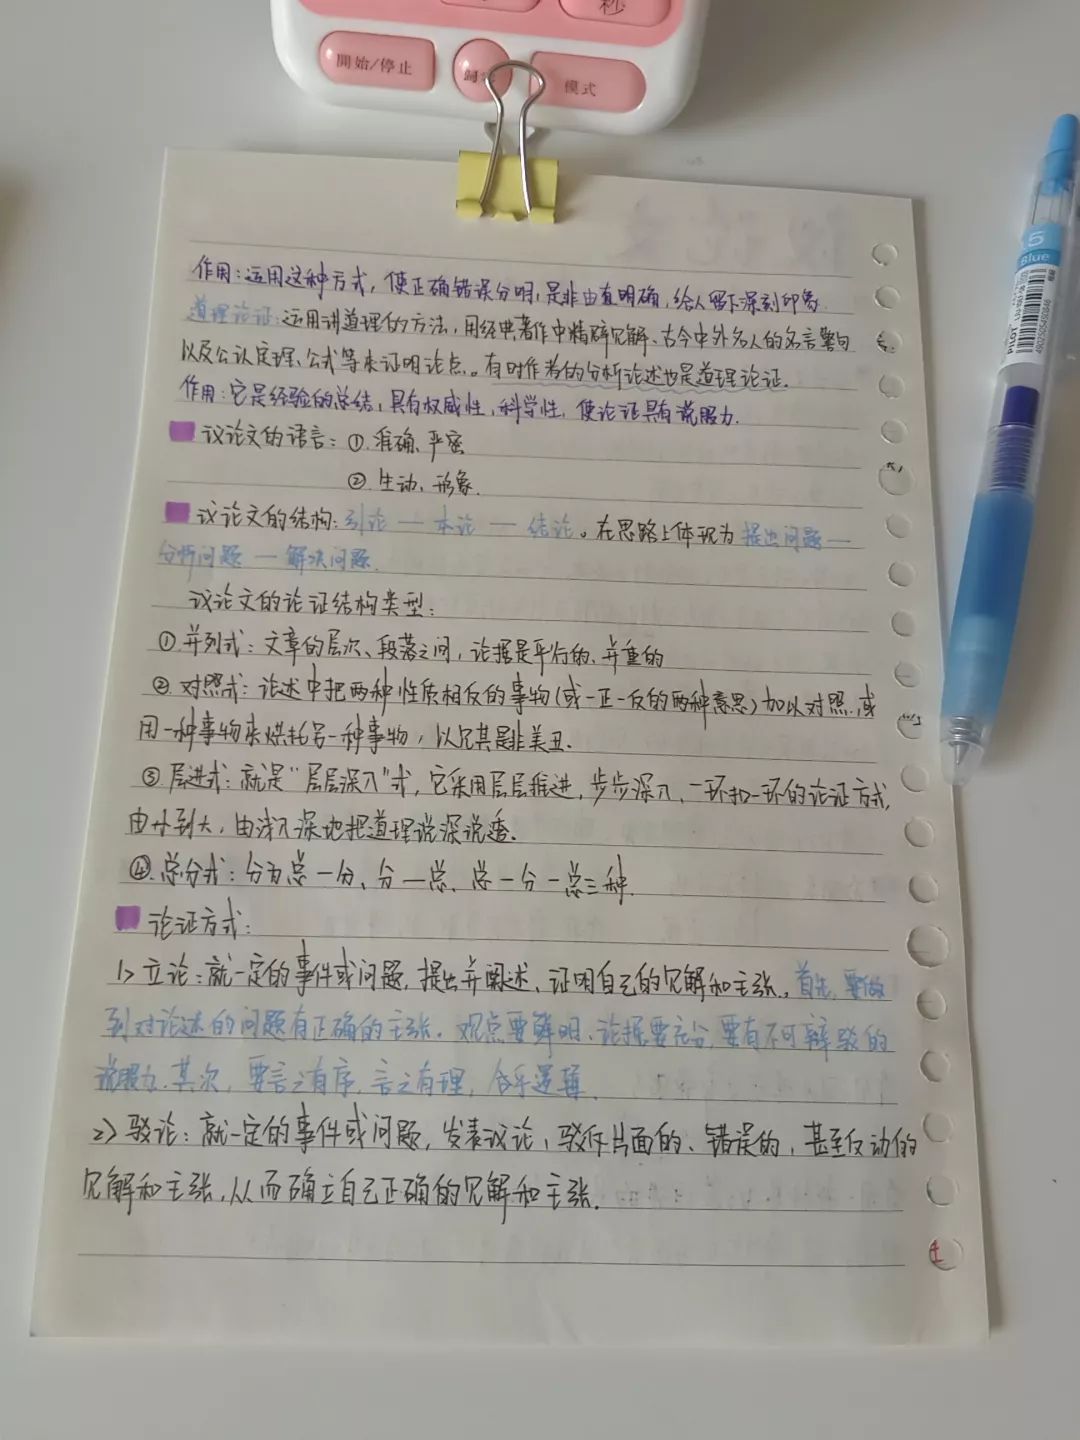 秒
開始/停止
歸零
模式
5
Blue
PILOT
4902505450846
作用:运用这种方式,使正确错误分明,是非曲直明确,给人留下深刻印象.
道理论证:运用讲道理的方法,用经典著作中精辟见解、古今中外名人的名言警句
以及公认定理、公式等来证明论点。有时作者的分析论述也是道理论证.
作用:它是经验的总结,具有权威性,科学性,使论证具有说服力.
议论文的语言:①.准确、严密
②.生动、形象.
议论文的结构:引论—本论—结论。在思路上体现为提出问题—
分析问题—解决问题.
议论文的论证结构类型:
①.并列式:文章的层次、段落之间,论据是平行的、并重的
②.对照式:论述中把两种性质相反的事物(或一正一反的两种意思)加以对照.或
用一种事物来烘托另一种事物,以见其是非美丑.
③.层进式:就是“层层深入”式,它采用层层推进,步步深入,一环扣一环的论证方式,
由小到大,由浅入深地把道理说深说透.
④.总分式:分为总一分、分一总、总一分一总三种.
论证方式:
1>立论:就一定的事件或问题,提出并阐述、证明自己的见解和主张。首先,要做
到对论述的问题有正确的主张.观点要鲜明、论据要充分,要有不可辩驳的
说服力.其次,要言之有序,言之有理,合乎逻辑.
2>驳论:就一定的事件或问题,发表议论,驳斥片面的、错误的,甚至反动的
见解和主张,从而确立自己正确的见解和主张.